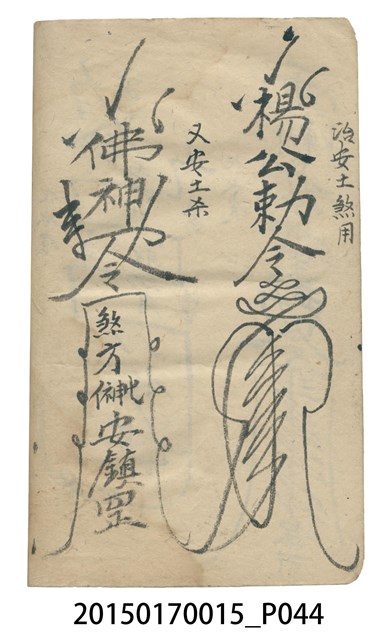 治安土煞用
楊公勅令
又安土杀
佛神
奉
令
煞方
安鎮罡
20150170015_P044